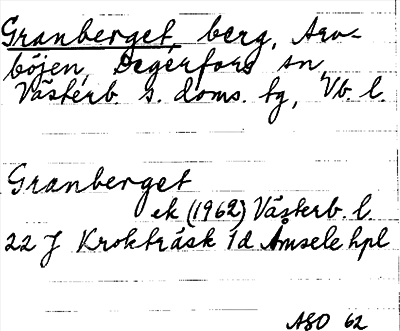 Granberget, berg, Avа-
böjen, Degerfors sn,
Västerb. s. doms. tg, Vb. l.
Granberget
ek (1962) Västerb. l.
22 J Kroktråsk 1d Åmsele hpl
ASO 62